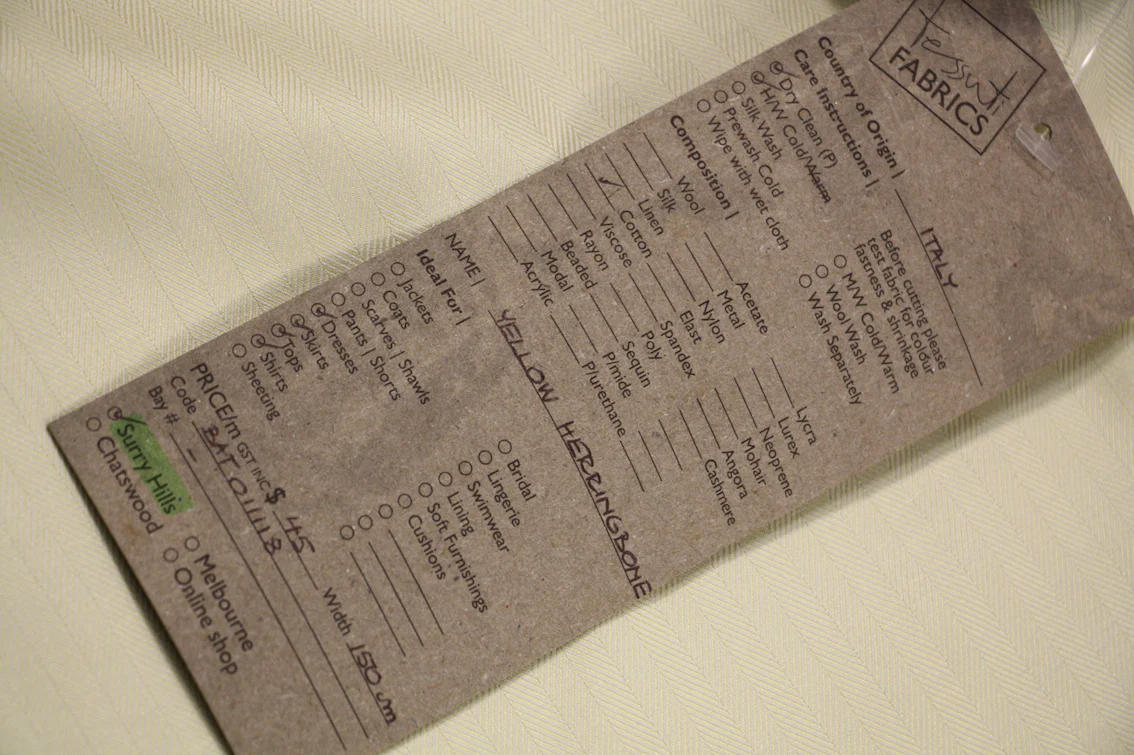 Tessuti
FABRICS
Country of Origin | ITALY
Care Instructions |
Dry Clean (P)
H/W Cold/Warm
Silk Wash
Prewash Cold
Wipe with wet cloth
Before cutting please
test fabric for colour
fastness & shrinkage
M/W Cold/Warm
Wool Wash
Wash Separately
Composition |
Wool
Silk
Linen
Cotton
Viscose
Rayon
Beaded
Modal
Acrylic
Acetate
Metal
Nylon
Elast
Spandex
Poly
Sequin
P/mide
P/urethane
Lycra
Lurex
Neoprene
Mohair
Angora
Cashmere
NAME | YELLOW HERRINGBONE
Ideal For |
Jackets
Coats
Scarves | Shawls
Pants | Shorts
Dresses
Skirts
Tops
Shirts
Sheeting
Bridal
Lingerie
Swimwear
Lining
Soft Furnishings
Cushions
PRICE/m GST INC $ 45 Width 150cm
Code BAT011118
Bay # -
Surry Hills
Chatswood
Melbourne
Online shop